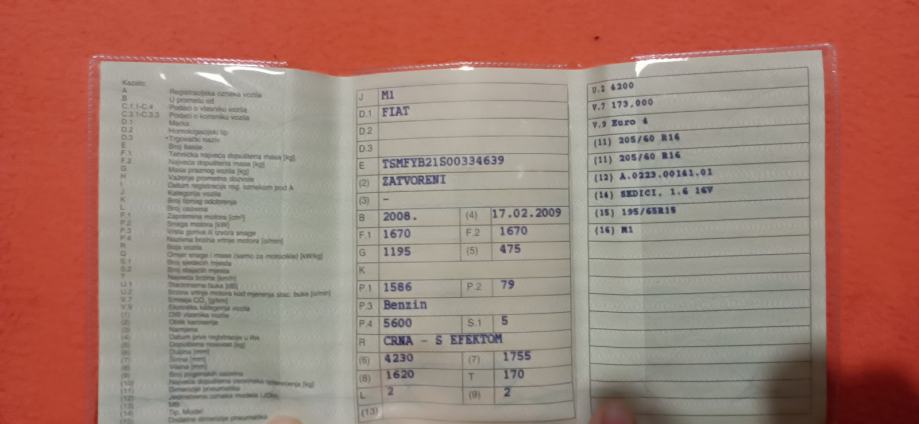 Kazalo:
A Registracijska oznaka vozila
B U prometu od
C.1.1-C.4 Podaci o vlasniku vozila
C.3.1-C.3.3 Podaci o korisniku vozila
D.1 Marka
D.2 Homologacijski tip
D.3 Trgovački naziv
E Broj šasije
F.1 Tehnička najveća dopuštena masa [kg]
F.2 Najveća dopuštena masa [kg]
G Masa praznog vozila [kg]
H Važenje prometne dozvole
I Datum registracije reg. oznakom pod A
J Kategorija vozila
K Broj tipnog odobrenja
L Broj osovina
P.1 Zapremina motora [cm³]
P.2 Snaga motora [kW]
P.3 Vrsta goriva ili izvora snage
P.4 Nazivna brzina vrtnje motora [o/min]
R Boja vozila
Q Omjer snage i mase (samo za motocikle) [kW/kg]
S.1 Broj sjedećih mjesta
S.2 Broj stajaćih mjesta
T Najveća brzina [km/h]
U.1 Stacionarna buka [dB]
U.2 Brzina vrtnje motora kod mjerenja stac. buke [o/min]
V.7 Emisija CO₂ [g/km]
V.9 Ekološka kategorija vozila
(1) OIB vlasnika vozila
(2) Oblik karoserije
(3) Namjena
(4) Datum prve registracije u RH
(5) Dopuštena nosivost [kg]
(6) Duljina [mm]
(7) Širina [mm]
(8) Visina [mm]
(9) Broj pogonskih osovina
(10) Najveće dopušteno osovinsko opterećenje [kg]
(11) Dimenzije pneumatika
(12)
(13) MB
(14) Tip, Model
(15) Dodatne dimenzije pneumatika
J M1
D.1 FIAT
D.2
D.3
E TSMFYB21S00334639
(2) ZATVORENI
(3) -
B 2008. (4) 17.02.2009
F.1 1670 F.2 1670
G 1195 (5) 475
K
P.1 1586 P.2 79
P.3 Benzin
P.4 5600 S.1 5
R CRNA - S EFEKTOM
(6) 4230 (7) 1755
(8) 1620 T 170
L 2 (9) 2
(13)
U.2 4200
V.7 173,000
V.9 Euro 4
(11) 205/60 R16
(11) 205/60 R16
(12) A.0223.00141.01
(14) SEDICI, 1.6 16V
(15) 195/65R15
(16) M1